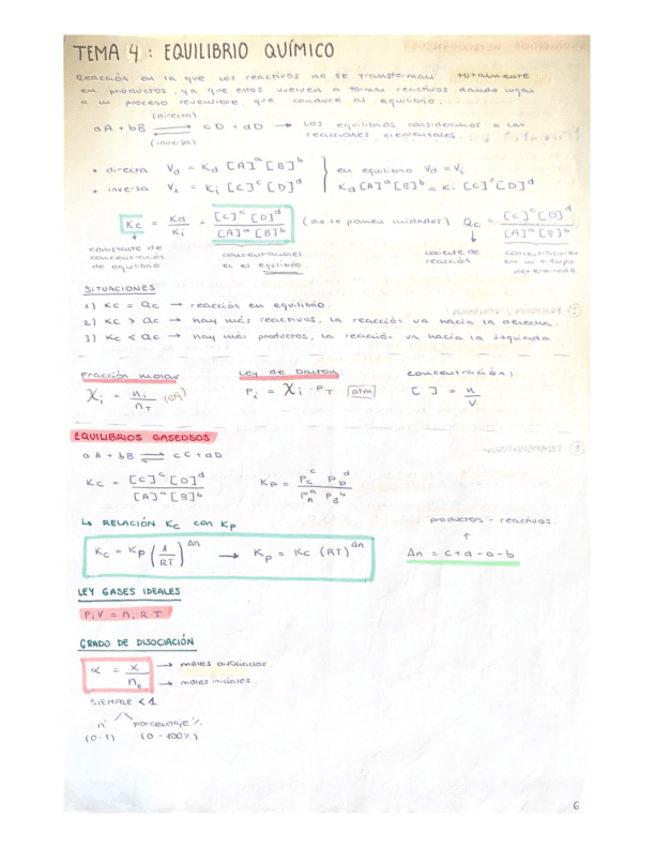 TEMA 4: EQUILIBRIO QUÍMICO
Reacción en la que los reactivos no se transforman totalmente
en productos, ya que estos vuelven a formar reactivos dando lugar
a un proceso reversible, que conduce al equilibrio.
(directa)
aA + bB ⇌ cD + dD → Los equilibrios, consideramos a las
(inversa) reacciones elementales.
• directa Vd = Kd [A]^a [B]^b } en equilibrio Vd = Vi
• inversa Vi = Ki [C]^c [D]^d } Kd [A]^a [B]^b = Ki [C]^c [D]^d
Kc = Kd/Ki = [C]^c [D]^d / [A]^a [B]^b (no se ponen unidades) Qc = [C]^c [D]^d / [A]^a [B]^b
constante de concentraciones cociente de concentraciones
concentración en el equilibrio reacción en un tiempo
de equilibrio determinado
SITUACIONES
1) Kc = Qc → reacción en equilibrio.
2) Kc > Qc → hay más reactivos, la reacción va hacia la derecha.
3) Kc < Qc → hay más productos, la reacción va hacia la izquierda.
Fracción molar Ley de Dalton: concentración:
Xi = ni/nT Pi = Xi · PT [atm] [ ] = n/V
EQUILIBRIOS GASEOSOS
aA + bB ⇌ cC + dD
Kc = [C]^c [D]^d / [A]^a [B]^b Kp = Pc^c PD^d / PA^a PB^b
↳ RELACIÓN Kc con Kp productos - reactivos.
↑
Kc = Kp (1/RT)^Δn → Kp = Kc (RT)^Δn Δn = c+d-a-b
LEY GASES IDEALES
PiV = niRT
GRADO DE DISOCIACIÓN
α = x/n₀ → moles disociados.
→ moles iniciales.
SIEMPRE < 1
nº porcentaje %
(0-1) (0 - 100%)
6